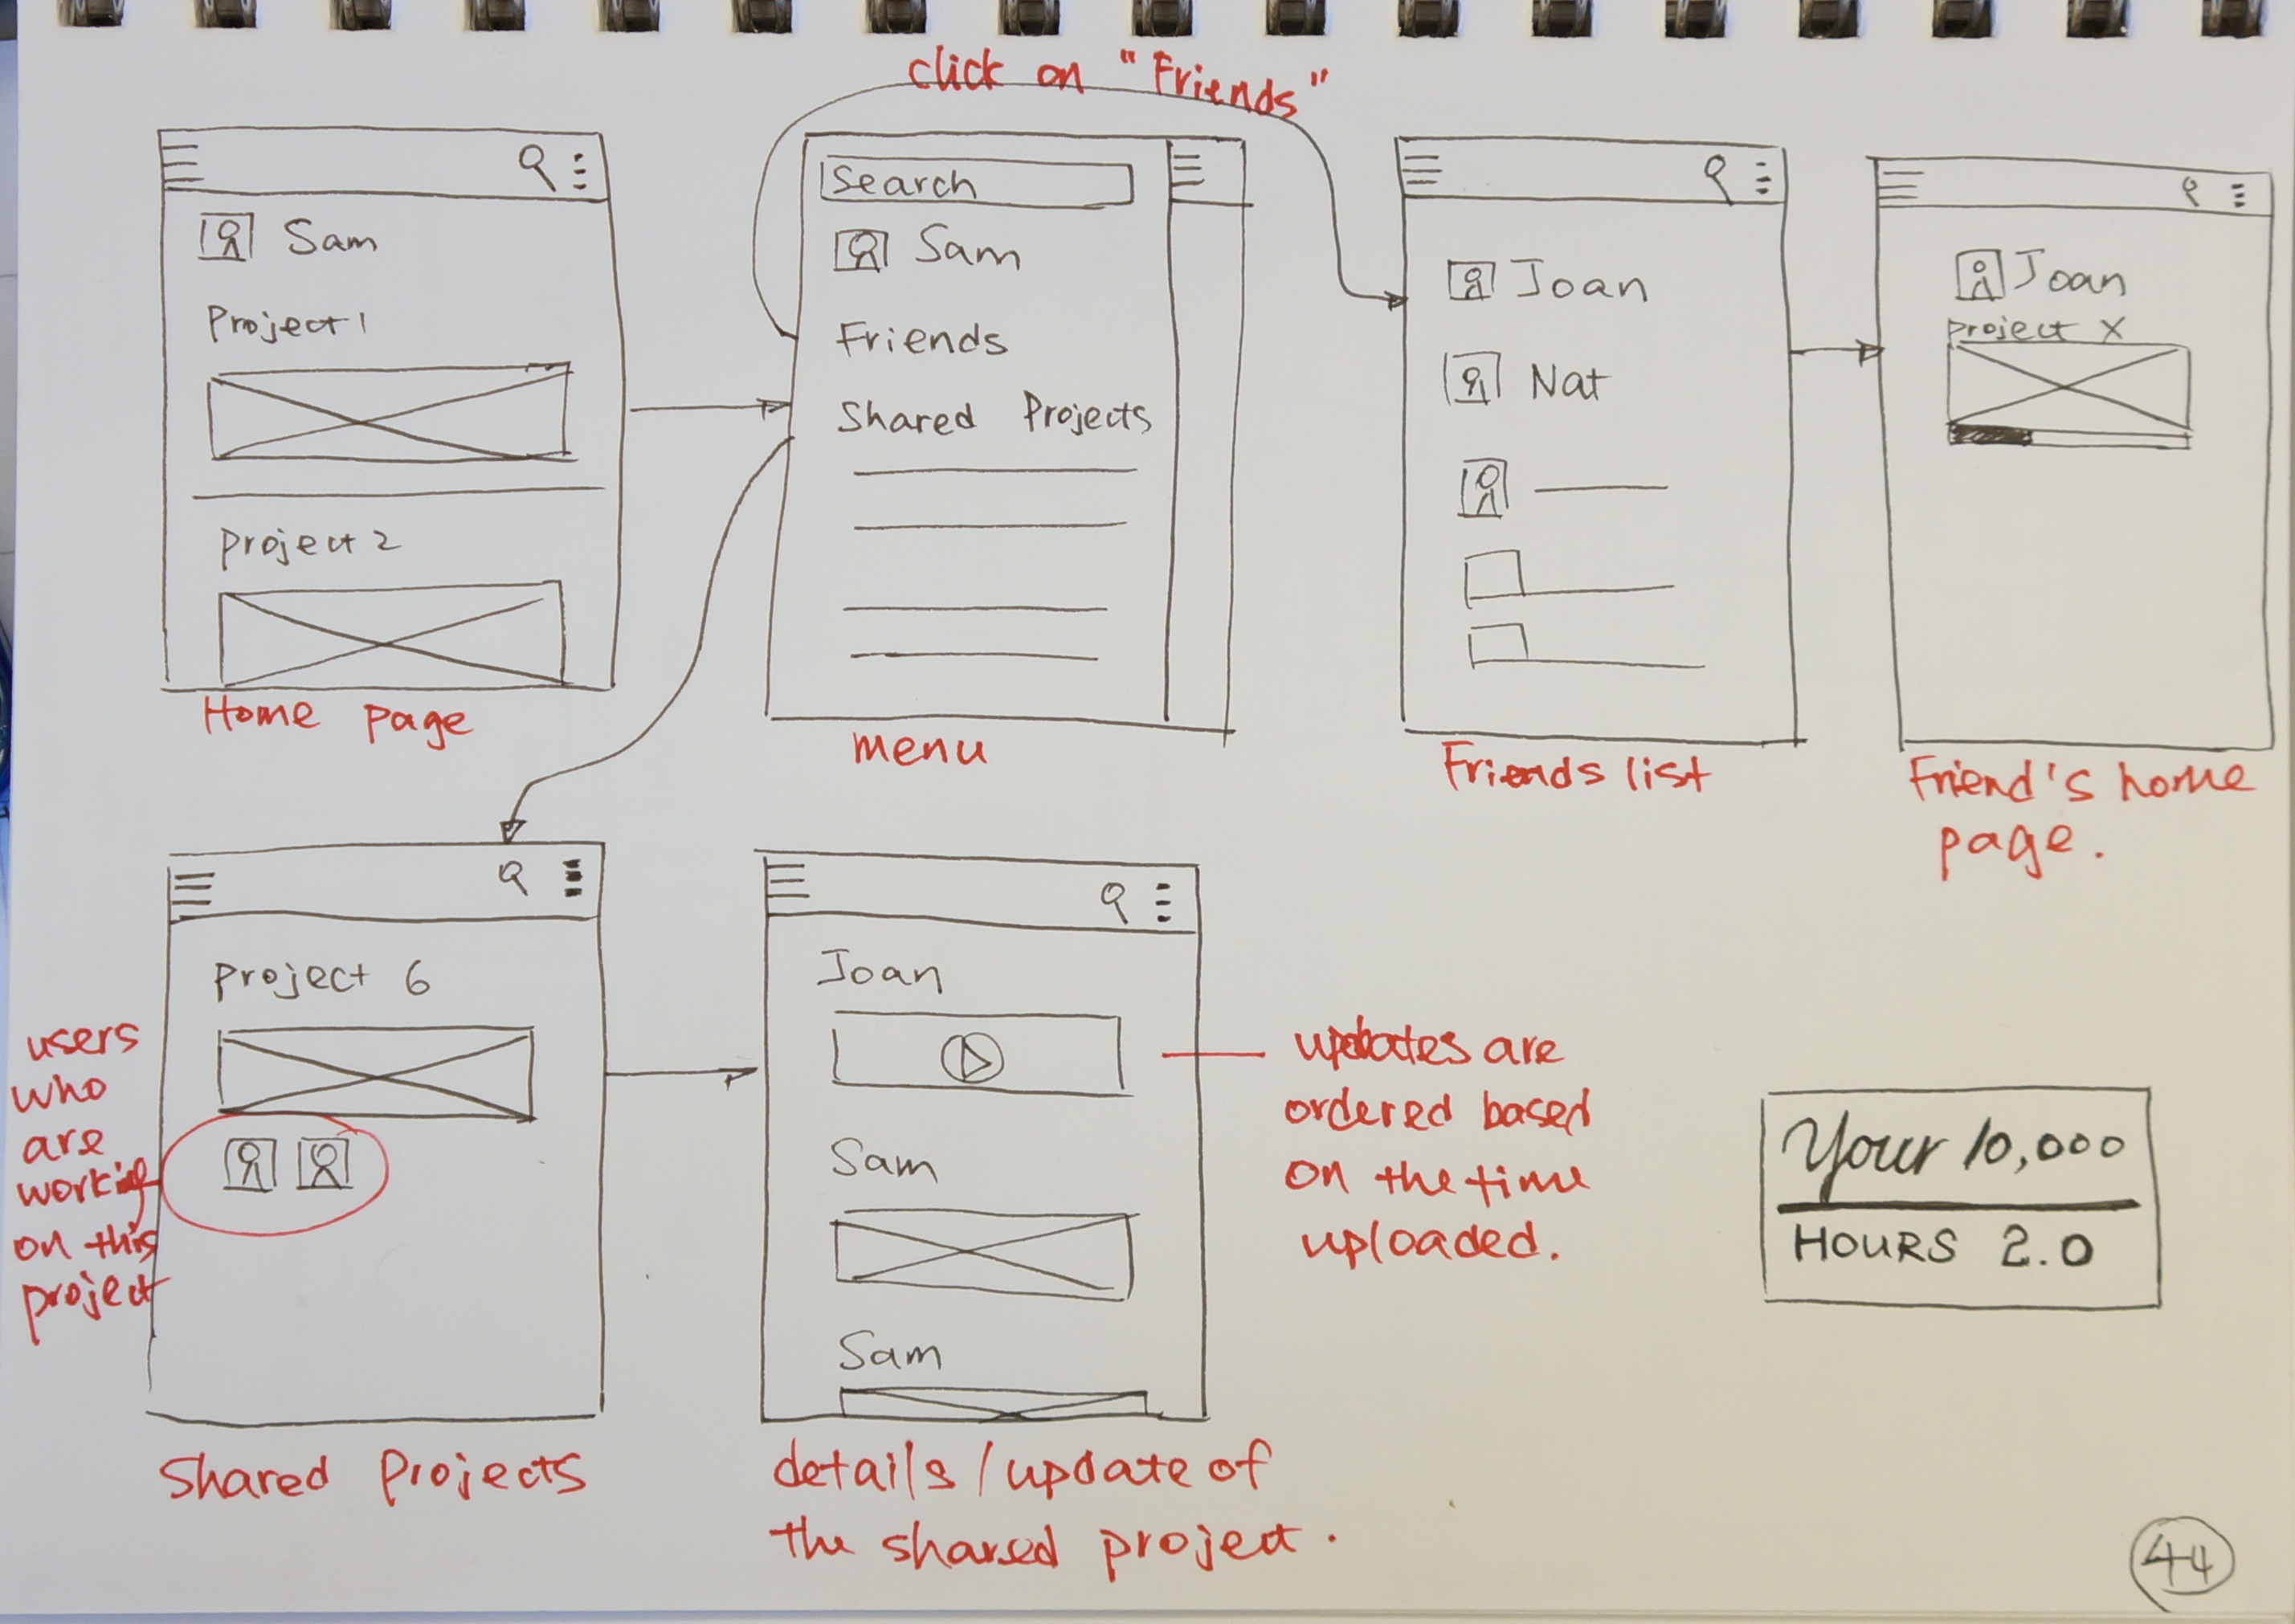 click on "Friends"
Sam
Project 1
Project 2
Home page
Search
Sam
Friends
Shared Projects
menu
Joan
Nat
Friends list
Joan
project X
Friend's home
page.
project 6
users
who
are
working
on this
project
Shared Projects
Joan
Sam
Sam
updates are
ordered based
on the time
uploaded.
details / update of
the shared project.
Your 10,000
HOURS 2.0
44